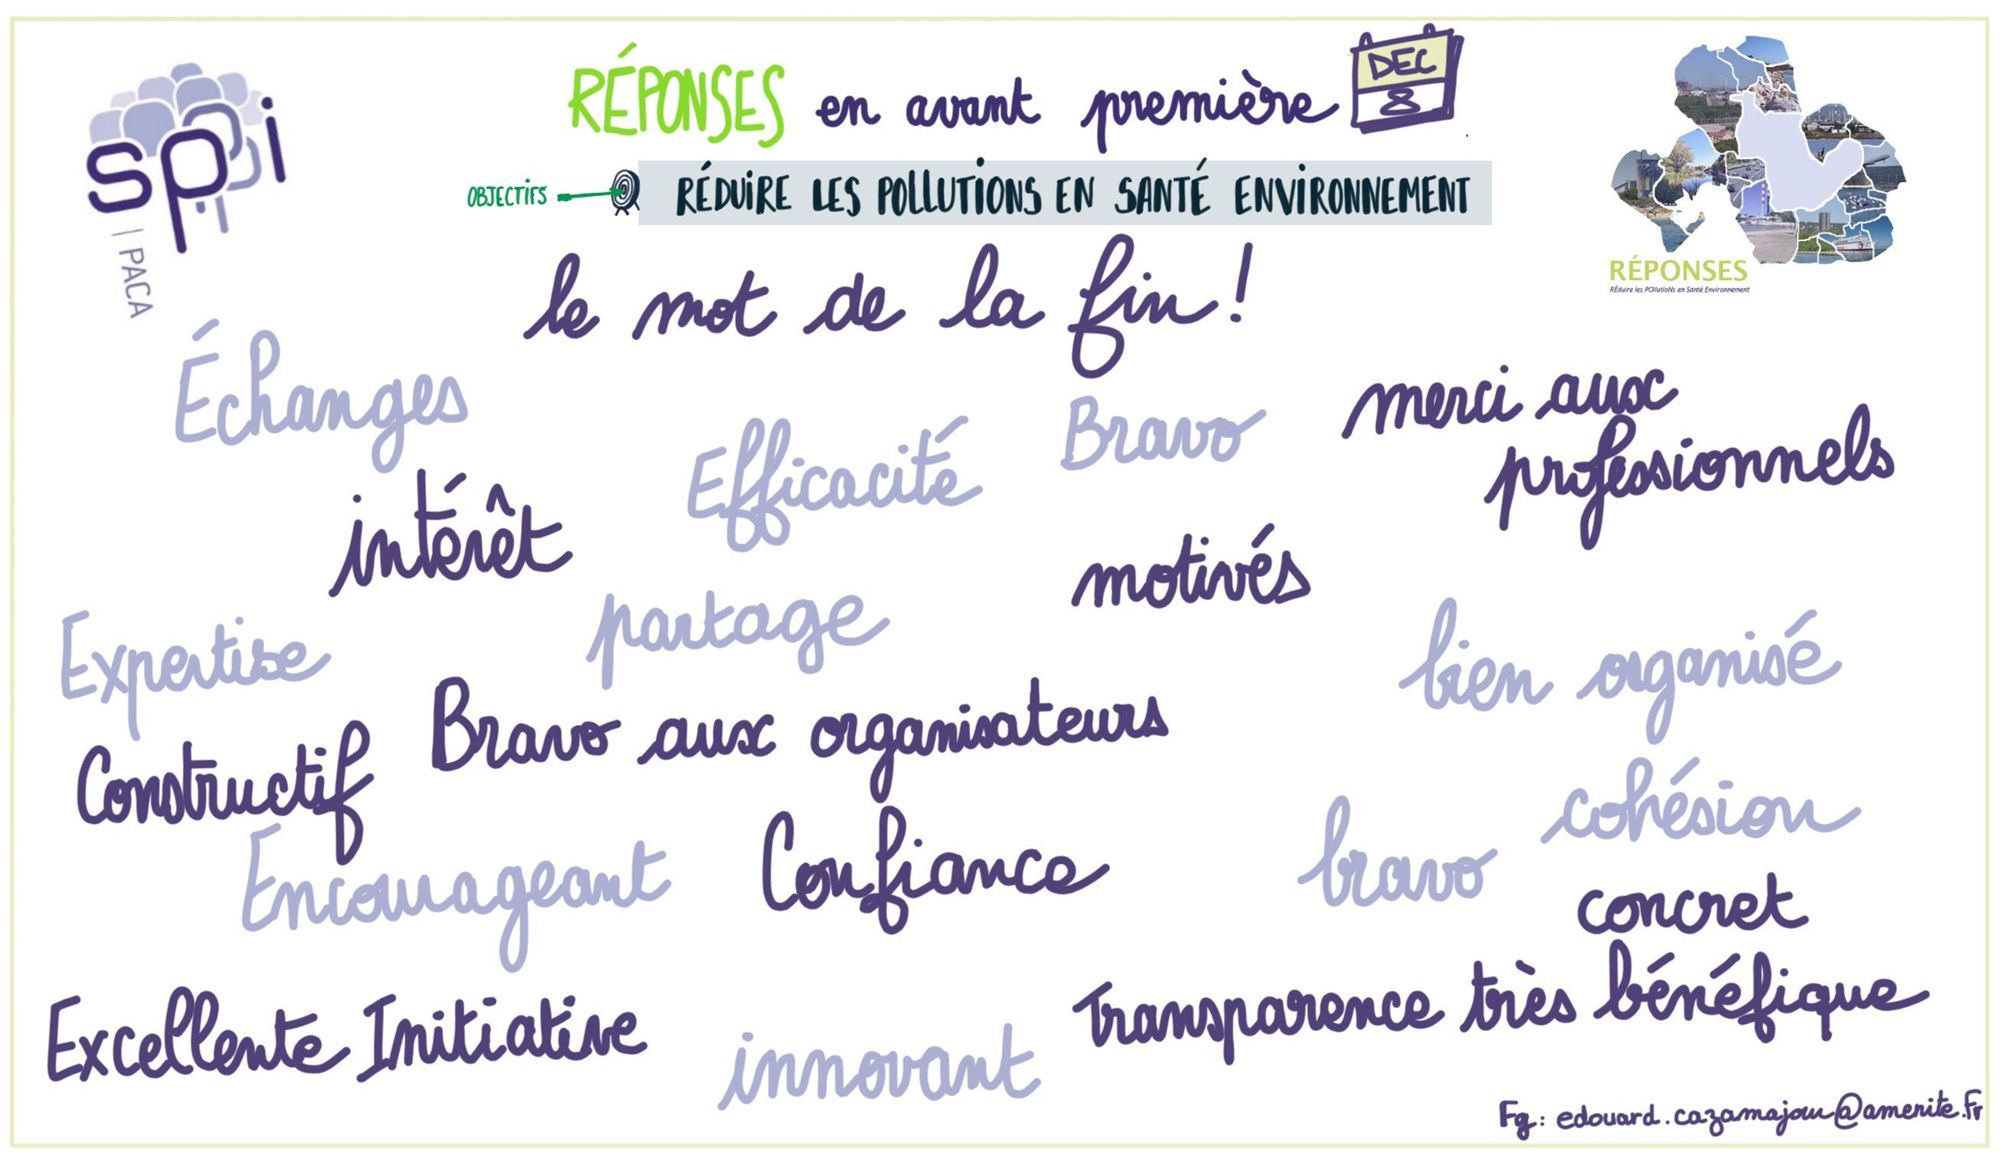 spi
| PACA
RÉPONSES en avant première
DEC
8
OBJECTIFS
RÉDUIRE LES POLLUTIONS EN SANTÉ ENVIRONNEMENT
RÉPONSES
RÉduire les POllutioNs en Santé Environnement
le mot de la fin !
Échanges
Efficacité
Bravo
merci aux
professionnels
intérêt
motivés
partage
Expertise
bien organisé
Bravo aux organisateurs
Constructif
cohésion
Encourageant
Confiance
bravo
concret
Excellente Initiative
innovant
Transparence très bénéfique
Fg: edouard.cazamajou@amenite.Fr